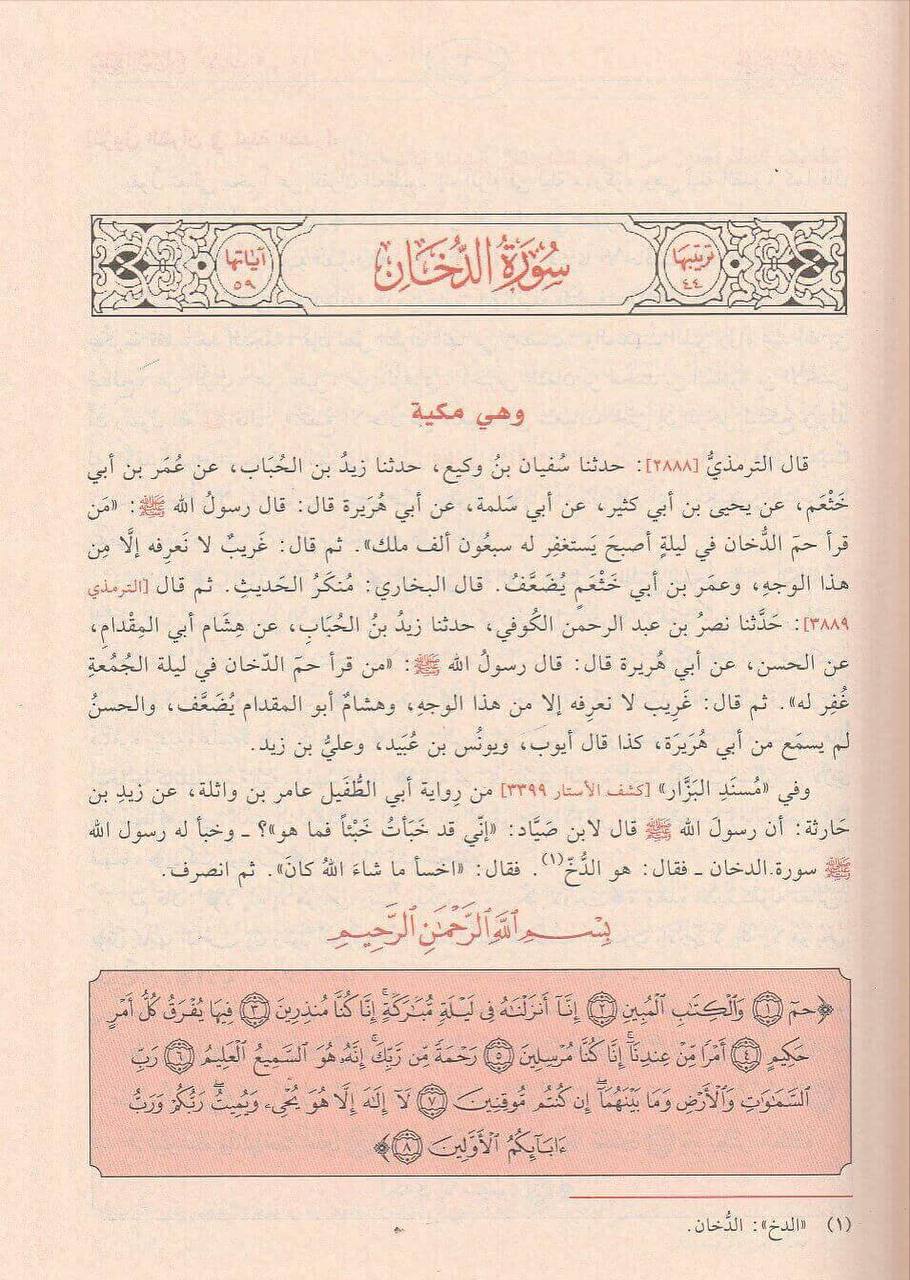 ترتيبها
٤٤
سُورَةُ الدُّخَانِ
آياتها
٥٩
وهي مكية
قال الترمذيُّ [٢٨٨٨]: حدثنا سُفيان بنُ وكيع، حدثنا زيدُ بن الحُبَاب، عن عُمَر بن أبي
خَثْعَم، عن يحيى بن أبي كثير، عن أبي سَلمة، عن أبي هُرَيرة قال: قال رسولُ الله ﷺ: «مَن
قرأ حمَ الدُّخان في ليلةٍ أصبحَ يَستغفِر له سبعُون ألف ملك». ثم قال: غَريبٌ لا نَعرِفه إلَّا مِن
هذا الوجهِ، وعمَر بن أبي خَثْعَمٍ يُضَعَّفُ. قال البخاري: مُنكَرُ الحَديثِ. ثم قال [الترمذي
٣٨٨٩]: حَدَّثنا نصرُ بن عبد الرحمن الكُوفي، حدثنا زيدُ بنُ الحُبَابِ، عن هِشَام أبي المِقْدامِ،
عن الحسن، عن أبي هُريرة قال: قال رسولُ الله ﷺ: «من قرأ حمَ الدّخان في ليلة الجُمُعةِ
غُفِر له». ثم قال: غَرِيب لا نَعرِفه إلا من هذا الوجهِ، وهشامٌ أبو المقدام يُضَعَّف، والحسنُ
لم يسمَع من أبي هُرَيرَة، كذا قال أيوبَ، ويونُس بن عُبَيد، وعليُّ بن زيد.
وفي «مُسنَدِ البَزَّار» [كشف الأستار ٣٣٩٩] من رِواية أبي الطُّفَيل عامر بن واثلة، عن زيدِ بن
حَارثة: أن رسولَ الله ﷺ قال لابن صَيَّاد: «إنّي قد خَبَأتُ خَبْئاً فما هو»؟ ـ وخبأ له رسول الله
ﷺ سورة.الدخان ـ فقال: هو الدُّخّ(١). فقال: «اخسأ ما شاءَ اللهُ كانَ». ثم انصرف.
بِسْمِ ٱللَّهِ ٱلرَّحْمَٰنِ ٱلرَّحِيمِ
﴿حمٓ ۝١ وَٱلْكِتَٰبِ ٱلْمُبِينِ ۝٢ إِنَّآ أَنزَلْنَٰهُ فِى لَيْلَةٍ مُّبَٰرَكَةٍ ۚ إِنَّا كُنَّا مُنذِرِينَ ۝٣ فِيهَا يُفْرَقُ كُلُّ أَمْرٍ
حَكِيمٍ ۝٤ أَمْرًا مِّنْ عِندِنَآ ۚ إِنَّا كُنَّا مُرْسِلِينَ ۝٥ رَحْمَةً مِّن رَّبِّكَ ۚ إِنَّهُۥ هُوَ ٱلسَّمِيعُ ٱلْعَلِيمُ ۝٦ رَبِّ
ٱلسَّمَٰوَٰتِ وَٱلْأَرْضِ وَمَا بَيْنَهُمَآ ۖ إِن كُنتُم مُّوقِنِينَ ۝٧ لَآ إِلَٰهَ إِلَّا هُوَ يُحْىِۦ وَيُمِيتُ ۖ رَبُّكُمْ وَرَبُّ
ءَابَآئِكُمُ ٱلْأَوَّلِينَ ۝٨﴾
(١) «الدخ»: الدُّخان.